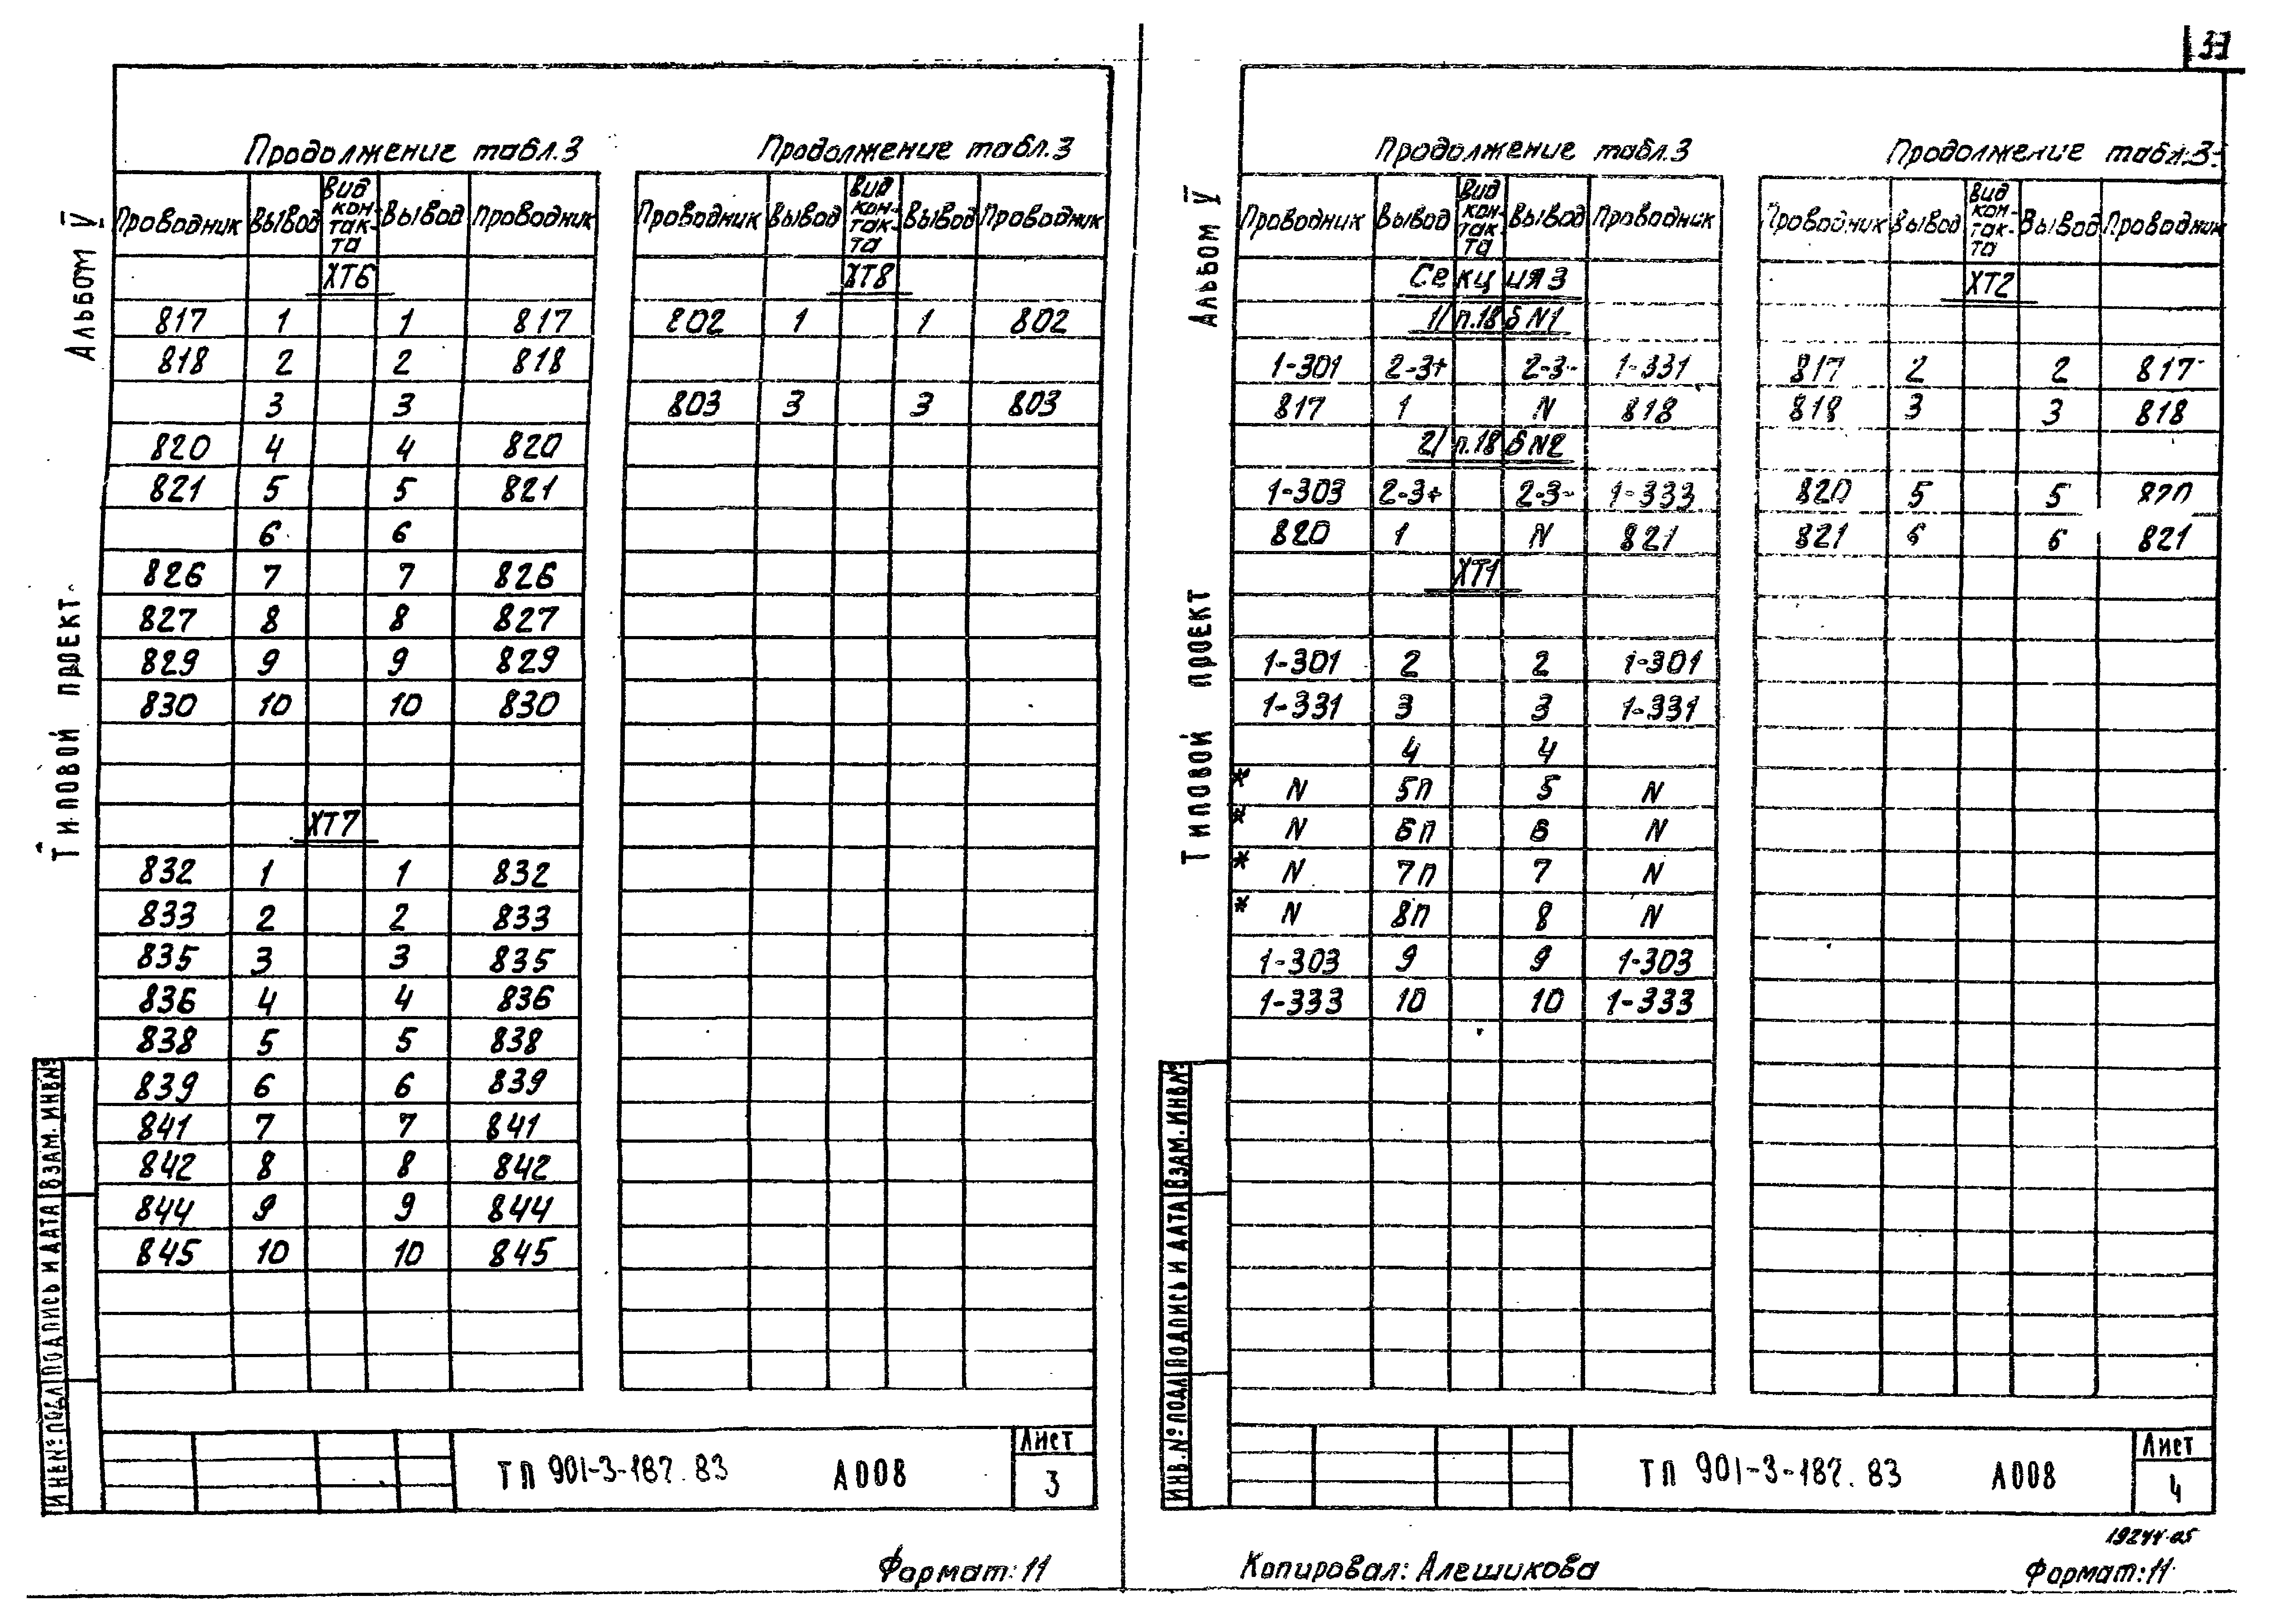 33
Альбом V
Типовой проект
ИНВ.№ ПОДЛ ПОДПИСЬ И ДАТА ВЗАМ. ИНВ.№
Продолжение табл.3
Проводник Вывод Вид контакта Вывод Проводник
ХТ6
817 1 1 817
818 2 2 818
3 3
820 4 4 820
821 5 5 821
6 6
826 7 7 826
827 8 8 827
829 9 9 829
830 10 10 830
ХТ7
832 1 1 832
833 2 2 833
835 3 3 835
836 4 4 836
838 5 5 838
839 6 6 839
841 7 7 841
842 8 8 842
844 9 9 844
845 10 10 845
Продолжение табл.3
Проводник Вывод Вид контакта Вывод Проводник
ХТ8
802 1 1 802
803 3 3 803
ТП 901-3-187.83 А008
Лист
3
Формат:11
Альбом V
Типовой проект
ИНВ.№ ПОДЛ ПОДПИСЬ И ДАТА ВЗАМ. ИНВ.№
Продолжение табл.3
Проводник Вывод Вид контакта Вывод Проводник
Секция 3
1/ п.18 б N1
1-301 2-3+ 2-3- 1-331
817 1 N 818
2/ п.18 б N2
1-303 2-3+ 2-3- 1-333
820 1 N 821
ХТ1
1-301 2 2 1-301
1-331 3 3 1-331
4 4
* N 5п 5 N
* N 6п 6 N
* N 7п 7 N
* N 8п 8 N
1-303 9 9 1-303
1-333 10 10 1-333
Продолжение табл.3
Проводник Вывод Вид контакта Вывод Проводник
ХТ2
817 2 2 817
818 3 3 818
820 5 5 820
821 6 6 821
ТП 901-3-187.83 А008
Лист
4
19244-05
Копировал: Алешикова
Формат:11